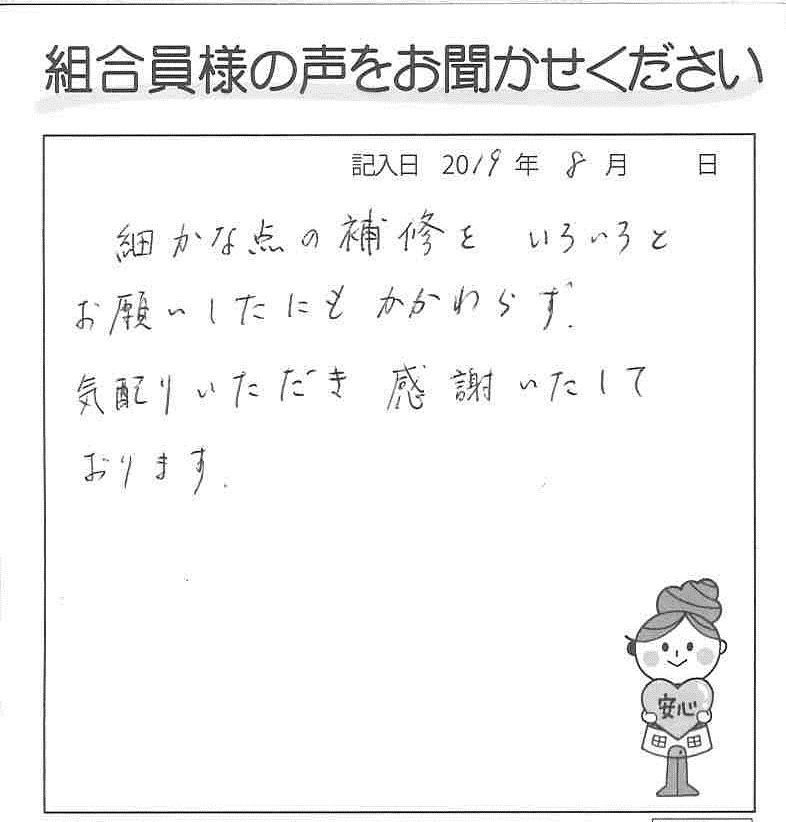 組合員様の声をお聞かせください
記入日 2019年 8月 日
細かな点の補修を いろいろと
お願いしたにもかかわらず.
気配りいただき 感謝いたして
おります.
安心